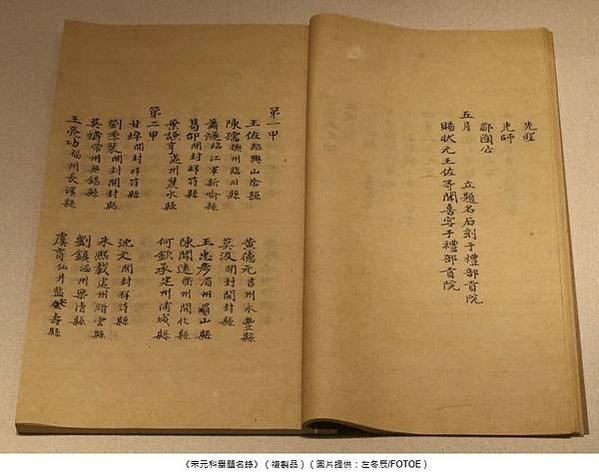 先聖
先師
鄒國公
五月　立題名石刻于禮部貢院
賜狀元王佐等聞喜宴于禮部貢院
第一甲
王佐紹興山陰縣　黃德元吉州永豐縣
陳孺撫州臨川縣　莫汲開封開封縣
蕭燧臨江軍新喻縣　王忠彥眉州眉山縣
葛邰開封祥符縣　陳聞遠衢州開化縣
葉謙亨處州麗水縣　何欽承建州浦城縣
第二甲
甘焯開封祥符縣　沈文開封祥符縣
劉季裴開封開封縣　朱熙載處州縉雲縣
吳燠常州無錫縣　劉鎮溫州樂清縣
王亮功福州長溪縣　虞育仙井監仁壽縣
《宋元科舉題名錄》（複製品）（圖片提供：左冬辰/FOTOE）